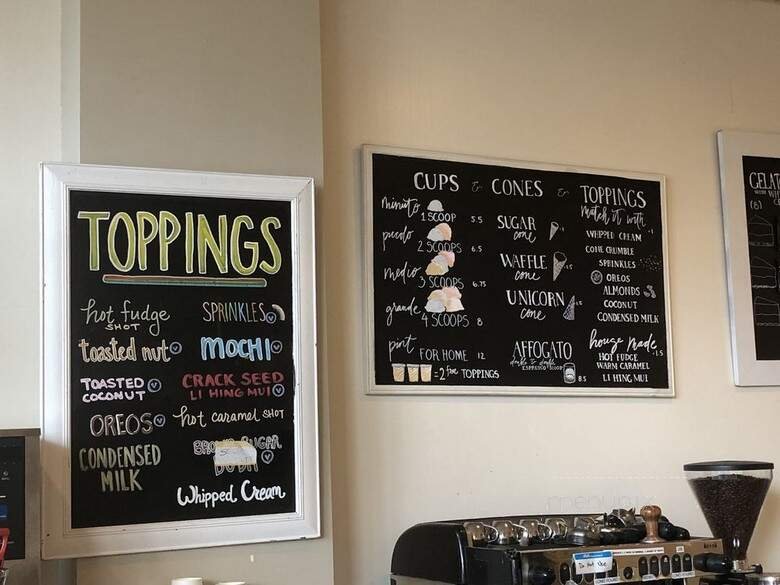 TOPPINGS
hot fudge SHOT
SPRINKLES
toasted nut
MOCHI
TOASTED COCONUT
CRACK SEED
LI HING MUI
OREOS
hot caramel SHOT
CONDENSED MILK
BROWN SUGAR
Whipped Cream
CUPS & CONES & TOPPINGS
minuto
1 SCOOP 5.5
piccolo
2 SCOOPS 6.5
medio
3 SCOOPS 6.75
grande
4 SCOOPS 8
pint
FOR HOME 12
= 2 free TOPPINGS
SUGAR
cone
WAFFLE
cone
UNICORN
cone
AFFOGATO
ESPRESSO
8.5
match it with
WHIPPED CREAM
CONE CRUMBLE
SPRINKLES
OREOS
ALMONDS
COCONUT
CONDENSED MILK
house made
1.5
HOT FUDGE
WARM CARAMEL
LI HING MUI
(8)